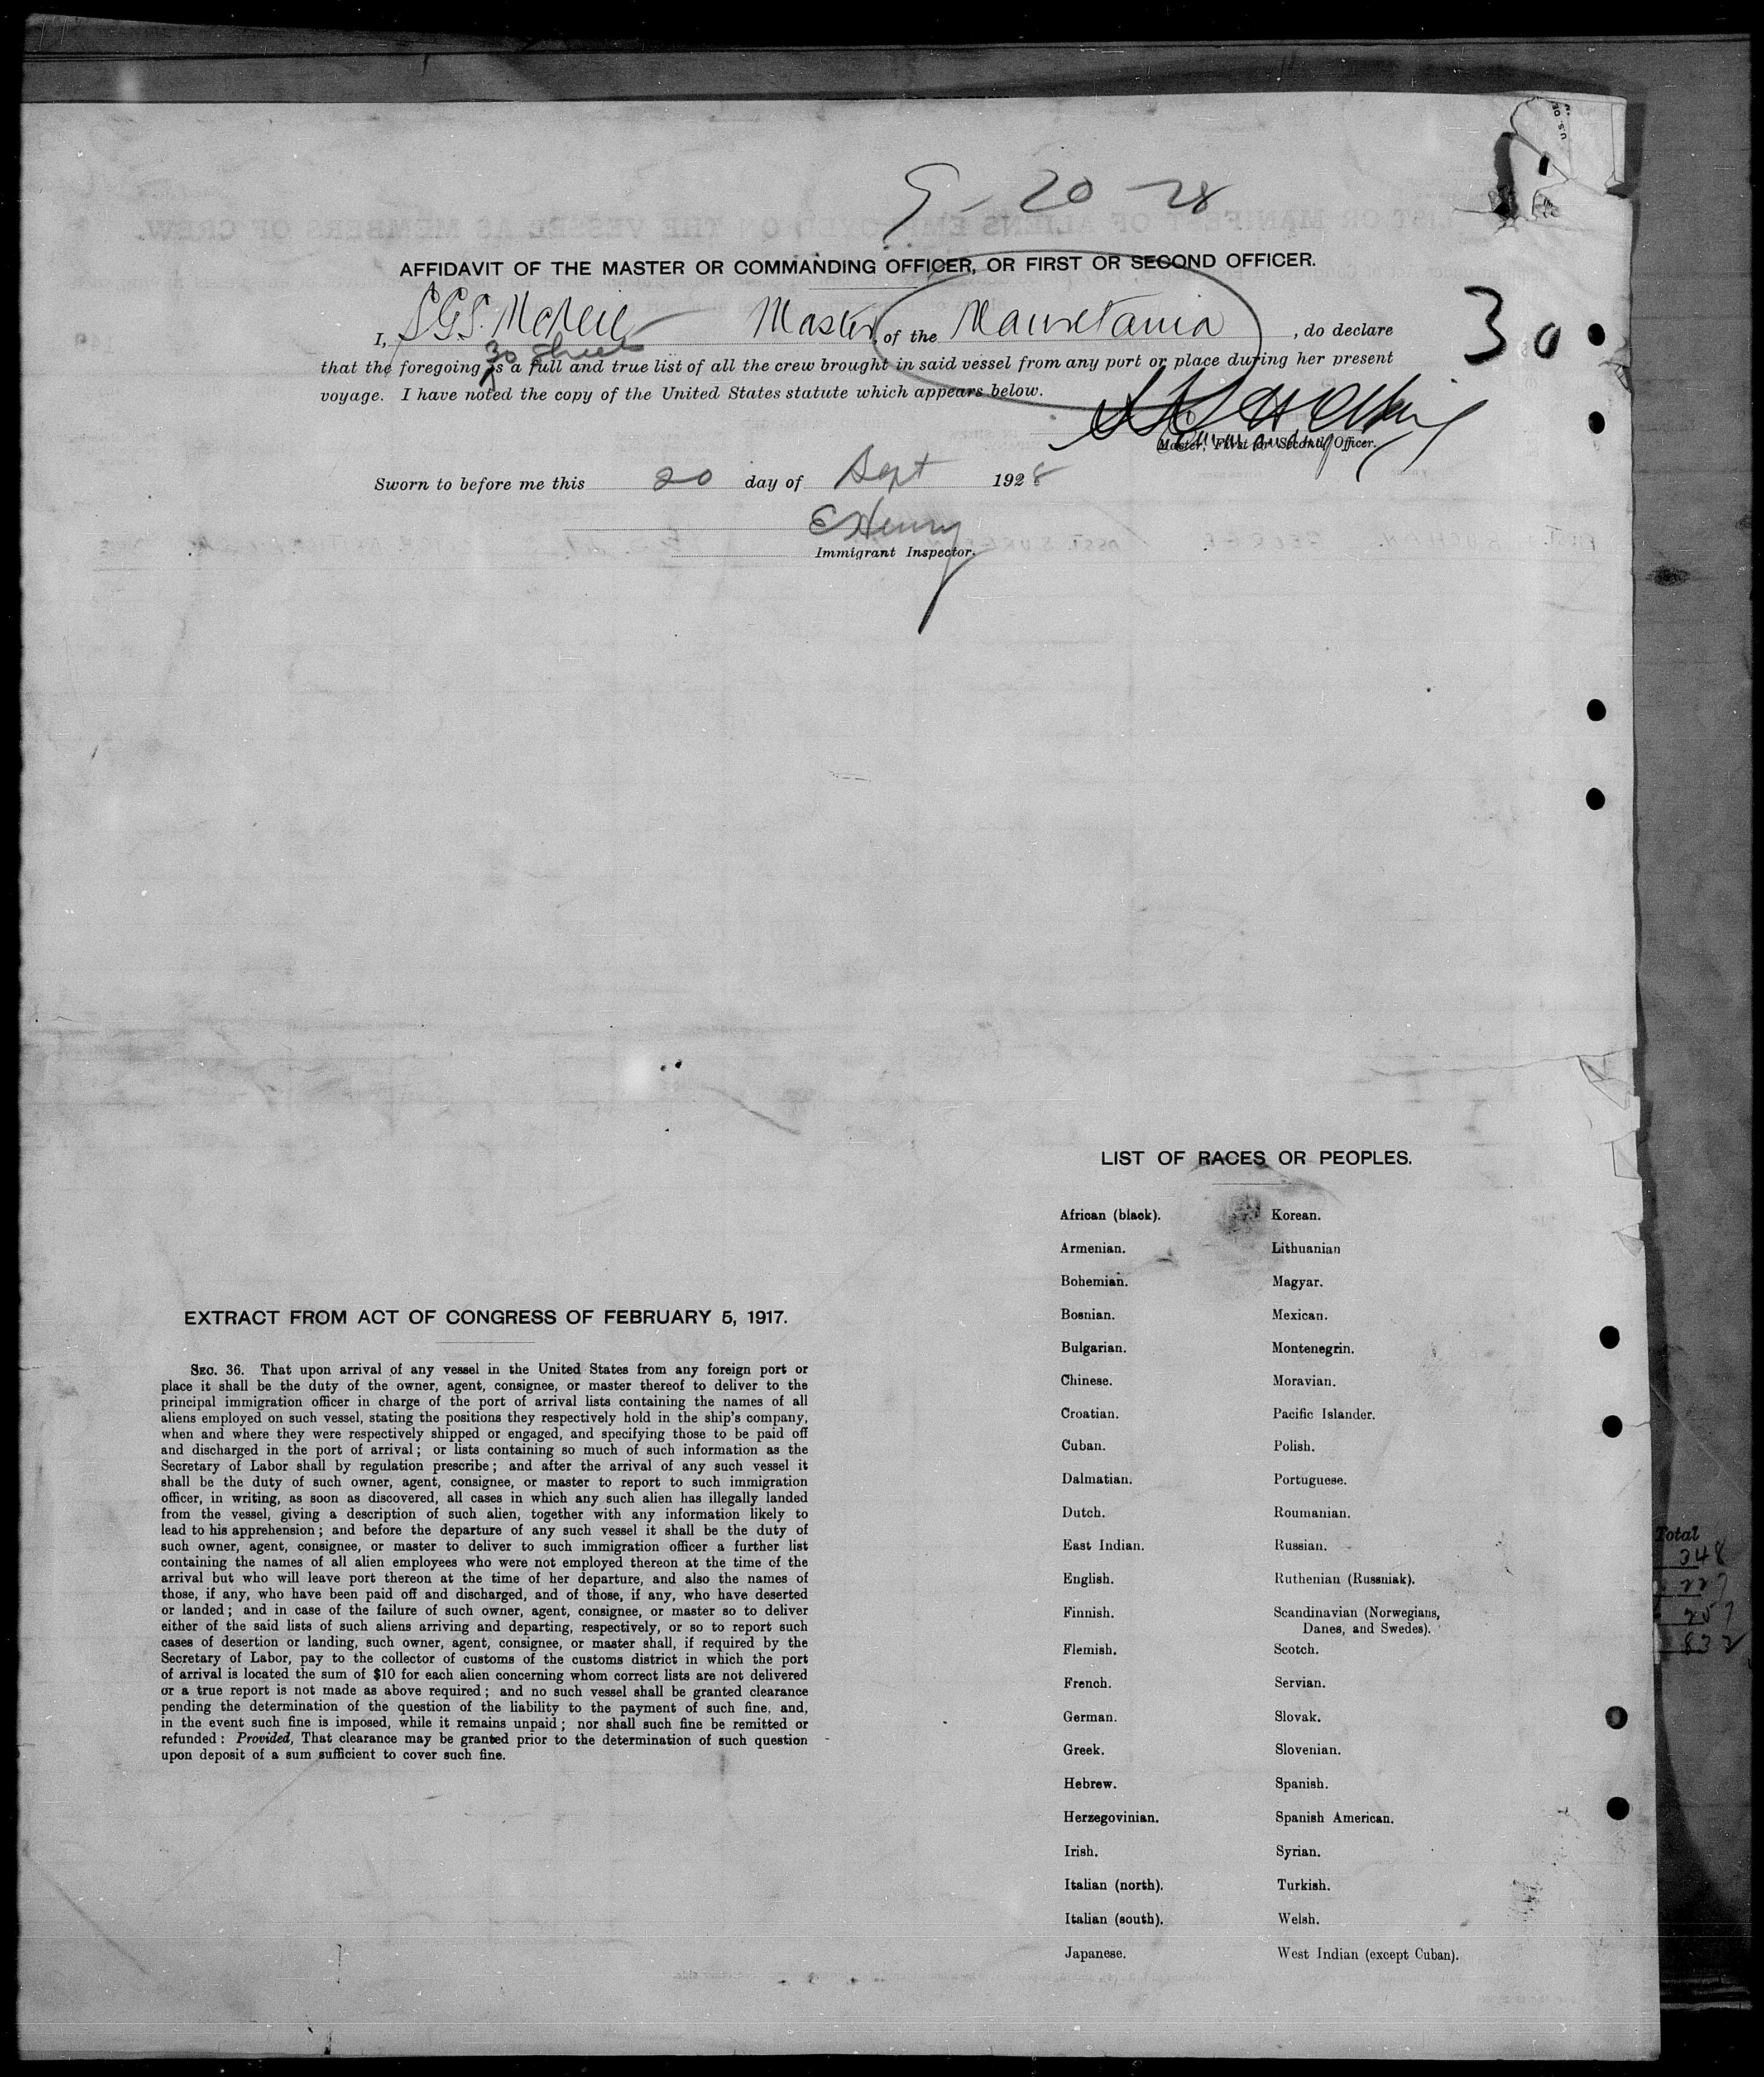 9-20-28
AFFIDAVIT OF THE MASTER OR COMMANDING OFFICER, OR FIRST OR SECOND OFFICER.
I, S.G.S. McNeil Master, of the Mauretania, do declare
30
30 sheets
that the foregoing is a full and true list of all the crew brought in said vessel from any port or place during her present
voyage. I have noted the copy of the United States statute which appears below.
Master, First or Second Officer.
Sworn to before me this 20 day of Sept 1928
E Henry
Immigrant Inspector.
EXTRACT FROM ACT OF CONGRESS OF FEBRUARY 5, 1917.
SEC. 36. That upon arrival of any vessel in the United States from any foreign port or
place it shall be the duty of the owner, agent, consignee, or master thereof to deliver to the
principal immigration officer in charge of the port of arrival lists containing the names of all
aliens employed on such vessel, stating the positions they respectively hold in the ship's company,
when and where they were respectively shipped or engaged, and specifying those to be paid off
and discharged in the port of arrival; or lists containing so much of such information as the
Secretary of Labor shall by regulation prescribe; and after the arrival of any such vessel it
shall be the duty of such owner, agent, consignee, or master to report to such immigration
officer, in writing, as soon as discovered, all cases in which any such alien has illegally landed
from the vessel, giving a description of such alien, together with any information likely to
lead to his apprehension; and before the departure of any such vessel it shall be the duty of
such owner, agent, consignee, or master to deliver to such immigration officer a further list
containing the names of all alien employees who were not employed thereon at the time of the
arrival but who will leave port thereon at the time of her departure, and also the names of
those, if any, who have been paid off and discharged, and of those, if any, who have deserted
or landed; and in case of the failure of such owner, agent, consignee, or master so to deliver
either of the said lists of such aliens arriving and departing, respectively, or so to report such
cases of desertion or landing, such owner, agent, consignee, or master shall, if required by the
Secretary of Labor, pay to the collector of customs of the customs district in which the port
of arrival is located the sum of $10 for each alien concerning whom correct lists are not delivered
or a true report is not made as above required; and no such vessel shall be granted clearance
pending the determination of the question of the liability to the payment of such fine, and,
in the event such fine is imposed, while it remains unpaid; nor shall such fine be remitted or
refunded: Provided, That clearance may be granted prior to the determination of such question
upon deposit of a sum sufficient to cover such fine.
LIST OF RACES OR PEOPLES.
African (black).
Armenian.
Bohemian.
Bosnian.
Bulgarian.
Chinese.
Croatian.
Cuban.
Dalmatian.
Dutch.
East Indian.
English.
Finnish.
Flemish.
French.
German.
Greek.
Hebrew.
Herzegovinian.
Irish.
Italian (north).
Italian (south).
Japanese.
Korean.
Lithuanian
Magyar.
Mexican.
Montenegrin.
Moravian.
Pacific Islander.
Polish.
Portuguese.
Roumanian.
Russian.
Ruthenian (Russniak).
Scandinavian (Norwegians,
Danes, and Swedes).
Scotch.
Servian.
Slovak.
Slovenian.
Spanish.
Spanish American.
Syrian.
Turkish.
Welsh.
West Indian (except Cuban).
Total
348
227
257
832